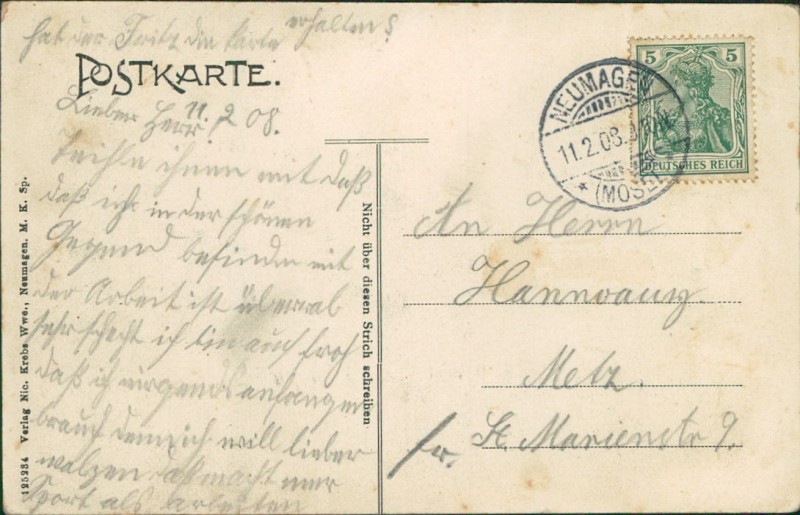 hat der Fritz die Karte erhalten?
POSTKARTE.
Lieber Herr 11.2.08.
Teihle ihnen mit daß
daß ich in der schönen
Gegend befinden mit
der Arbeit ist überral
sehr schecht ich bin auch froh
daß ich nirgends anfangen
brauch denn ich will lieber
walzen daß macht mer
Sport als arbeiten
Nicht über diesen Strich schreiben
125234 Verlag Nic. Krebs Wwe., Neumagen. M. K. Sp.
NEUMAGEN
11.2.08.
* (MOSEL)
5 5
DEUTSCHES REICH
An Herrn
Metz.
fr. St Marienstr 9.